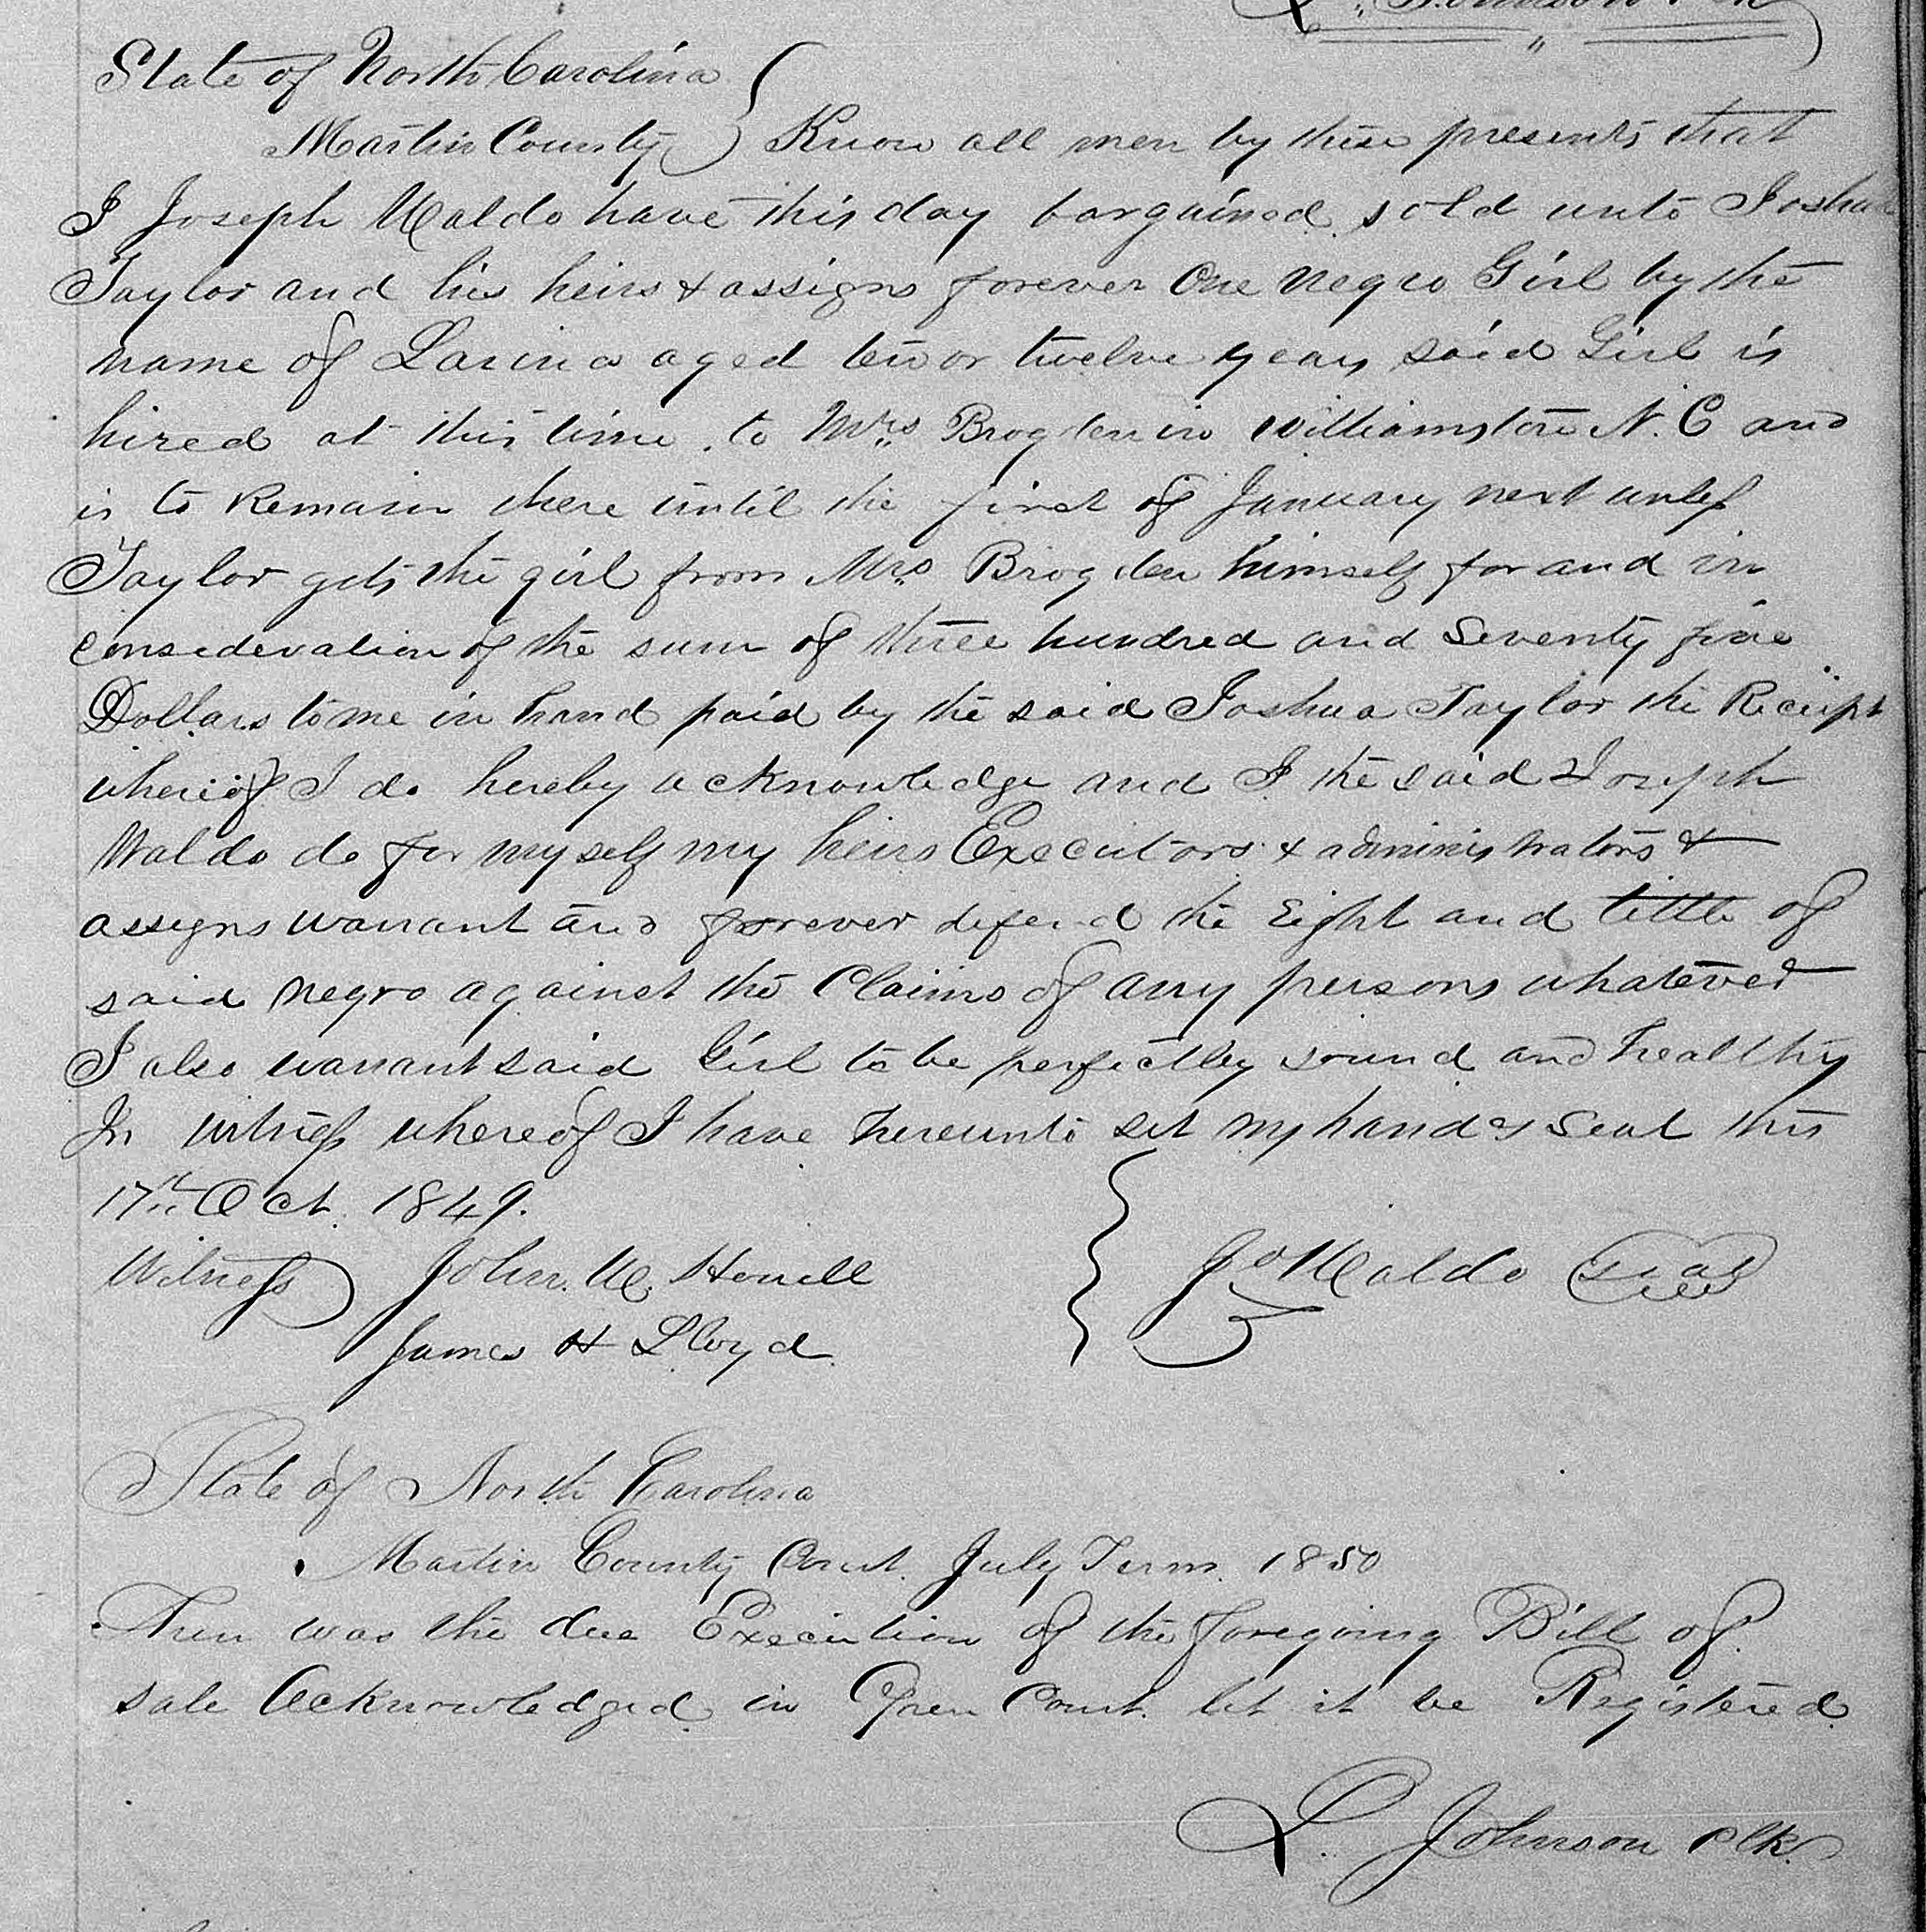 State of North Carolina
Martin County } Know all men by these presents that
I Joseph Waldo have this day bargained sold unto Joshua
Taylor and his heirs & assigns forever One negro Girl by the
name of Lavina aged ten or twelve years said Girl is
hired at this time to Mrs Brogden in Williamston N. C and
is to Remain there until the first of January next unless
Taylor gets the girl from Mrs Brogden himself for and in
consideration of the sum of three hundred and Seventy five
Dollars to me in hand paid by the said Joshua Taylor the Receipt
whereof I do hereby acknowledge and I the said Joseph
Waldo do for myself my heirs Executors & administrators &
assigns warrant and forever defend the Right and tittle of
said negro against the Claims of any persons whatever
I also warrant said Girl to be perfectley sound and healthy
In witness whereof I have hereunto set my hand & Seal this
17th Oct. 1849.
Witness John. W. Howell } Jo Waldo Seal
James H Lloyd
State of North Carolina
Martin County Court. July Term. 1850
Then was the due Execution of the foregoing Bill of
sale Acknowledged in Open Court. let it be Registered
L. Johnson Clk.